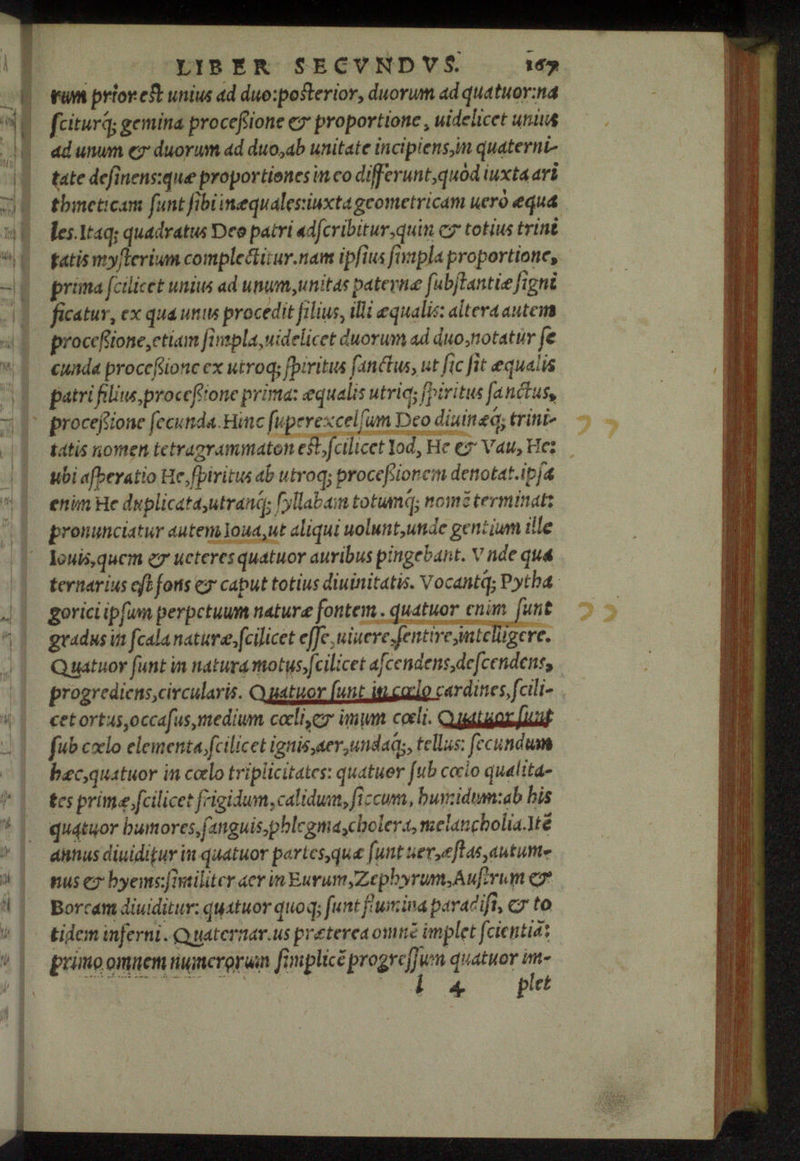 LIBER SECVNDVS. 167
rum prior est unius ad duo:posterior, duorum ad quatuor:na
ſciturq́; gemina proceßione & proportione, uidelicet unius
ad unum & duorum ad duo,ab unitate incipiens,in quaterni-
tate deſinens:quæ proportiones in eo differunt,quòd iuxta ari
thmeticam ſunt ſibi inæquales:iuxta geometricam uerò æqua
les.Itaq; quadratus Deo patri adſcribitur,quin & totius trini
tatis myſterium complectitur.nam ipſius ſimpla proportione,
prima ſcilicet unius ad unum,unitas paternæ ſubſtantiæ ſigni
ficatur, ex qua unus procedit filius, illi æqualis: altera autem
proceßione,etiam ſimpla,uidelicet duorum ad duo,notatur ſe
cunda proceßione ex utroq; ſpiritus ſanctus, ut ſic ſit æqualis
patri filius,proceßione prima: æqualis utriq; ſpiritus ſanctus,
proceßione ſecunda.Hinc ſuperexcelſum Deo diuinæq́; trini-
tatis nomen tetragrammaton est,ſcilicet Iod, He & Vau, He:
ubi aſperatio He,ſpiritus ab utroq; proceßionem denotat.ipſa
enim He duplicata,utranq́; ſyllabam totumq́; nomẽ terminat:
pronunciatur autem Ioua,ut aliqui uolunt,unde gentium ille
Iouis,quem & ueteres quatuor auribus pingebant. Vnde qua
ternarius eſt fons & caput totius diuinitatis. Vocantq́; Pytha
gorici ipſum perpetuum naturæ fontem. quatuor enim ſunt
gradus in ſcala naturæ,ſcilicet eſſe,uiuere,ſentire,intelligere.
Quatuor ſunt in natura motus,ſcilicet aſcendens,deſcendens,
progrediens,circularis. Quatuor ſunt in cœlo cardines,ſcili-
cet ortus,occaſus,medium cœli,& imum cœli. Quatuor ſunt
ſub cœlo elementa,ſcilicet ignis,aer,undaq́;, tellus: ſecundum
hæc,quatuor in cœlo triplicitates: quatuor ſub cœlo qualita-
tes primæ,ſcilicet frigidum,calidum,ſiccum, humidum:ab his
quatuor humores,ſanguis,phlegma,cholera, melancholia.Itẽ
annus diuiditur in quatuor partes,quæ ſunt uer,æſtas,autum-
nus & hyems:ſimiliter aer in Eurum,Zephyrum,Auſtrum &
Boream diuiditur: quatuor quoq; ſunt flumina paradiſi, & to
tidem inferni. Quaternarius præterea omnẽ implet ſcientiã:
primo omnem numerorum ſimplicẽ progreſſum quatuor im-
l 4 plet